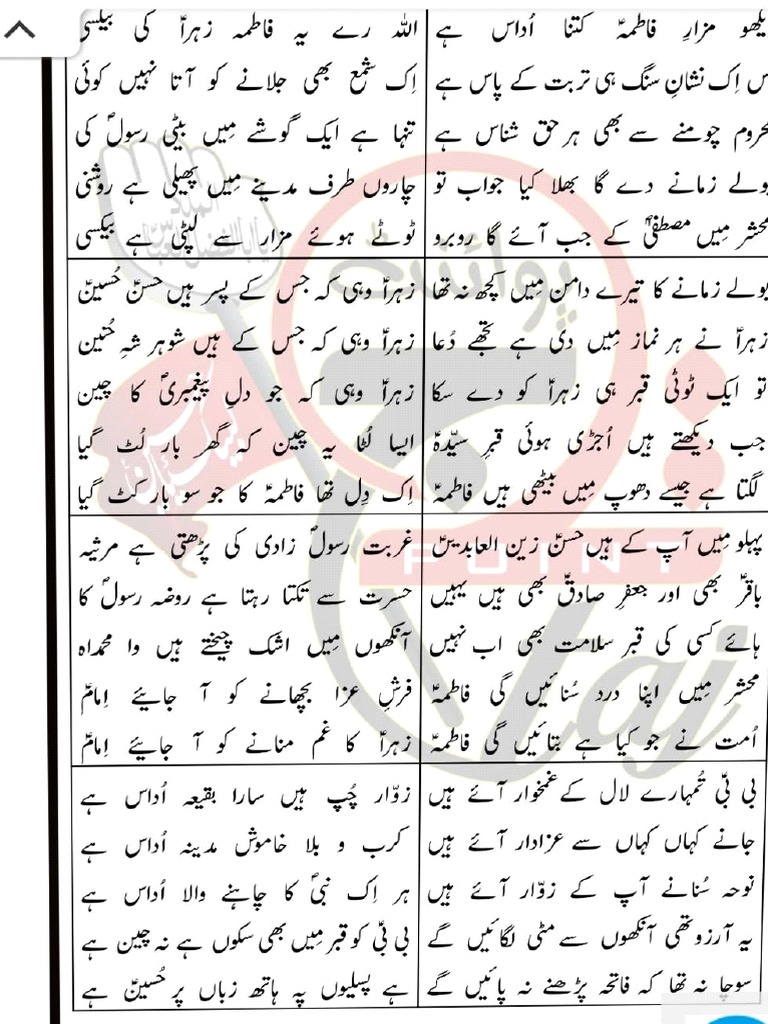 یکھو مزارِ فاطمہؑ کتنا اُداس ہے
س اِک نشانِ سنگ ہی تربت کے پاس ہے
حروم چومنے سے بھی ہر حق شناس ہے
ولے زمانے دے گا بھلا کیا جواب تو
محشر میں مصطفیؐ کے جب آئے گا روبرو
اللہ رے یہ فاطمہ زہراؑ کی بیکسی
اِک شمع بھی جلانے کو آتا نہیں کوئی
تنہا ہے ایک گوشے میں بیٹی رسولؐ کی
چاروں طرف مدینے میں پھیلی ہے روشنی
ٹوٹے ہوئے مزار سے لپٹی ہے بیکسی
بولے زمانے کا تیرے دامن میں کچھ نہ تھا
زہراؑ نے ہر نماز میں دی ہے تجھے دُعا
تو ایک ٹوٹی قبر ہی زہراؑ کو دے سکا
جب دیکھتے ہیں اُجڑی ہوئی قبرِ سیّدہؑ
لگتا ہے جیسے دھوپ میں بیٹھی ہیں فاطمہؑ
زہراؑ وہی کہ جس کے پسر ہیں حسنؑ حُسینؑ
زہراؑ وہی کہ جس کے ہیں شوہر شہِ حُنین
زہراؑ وہی کہ جو دلِ پیغمبریؐ کا چین
ایسا لُٹا یہ چین کہ گھر بار لُٹ گیا
اِک دِل تھا فاطمہؑ کا جو سو بار کٹ گیا
پہلو میں آپ کے ہیں حسنؑ زین العابدیںؑ
باقرؑ بھی اور جعفرِ صادقؑ بھی ہیں یہیں
ہائے کسی کی قبر سلامت بھی اب نہیں
محشر میں اپنا درد سُنائیں گی فاطمہؑ
اُمت نے جو کیا ہے بتائیں گی فاطمہؑ
غربت رسولؐ زادی کی پڑھتی ہے مرثیہ
حسرت سے تکتا رہتا ہے روضہ رسولؐ کا
آنکھوں میں اشک چیختے ہیں وا محمداہ
فرشِ عزا بچھانے کو آ جایئے اِمامؑ
زہراؑ کا غم منانے کو آ جایئے اِمامؑ
بی بیؑ تُمہارے لال کے غمخوار آئے ہیں
جانے کہاں کہاں سے عزادار آئے ہیں
نوحہ سُنانے آپ کے زوّار آئے ہیں
یہ آرزو تھی آنکھوں سے مٹی لگائیں گے
سوچا نہ تھا کہ فاتحہ پڑھنے نہ پائیں گے
زوّار چُپ ہیں سارا بقیعہ اُداس ہے
کرب و بلا خاموش مدینہ اُداس ہے
ہر اِک نبیؐ کا چاہنے والا اُداس ہے
بی بیؑ کو قبر میں بھی سکوں ہے نہ چین ہے
ہے پسلیوں پہ ہاتھ زباں پر حُسینؑ ہے
پوائنٹ
POINT